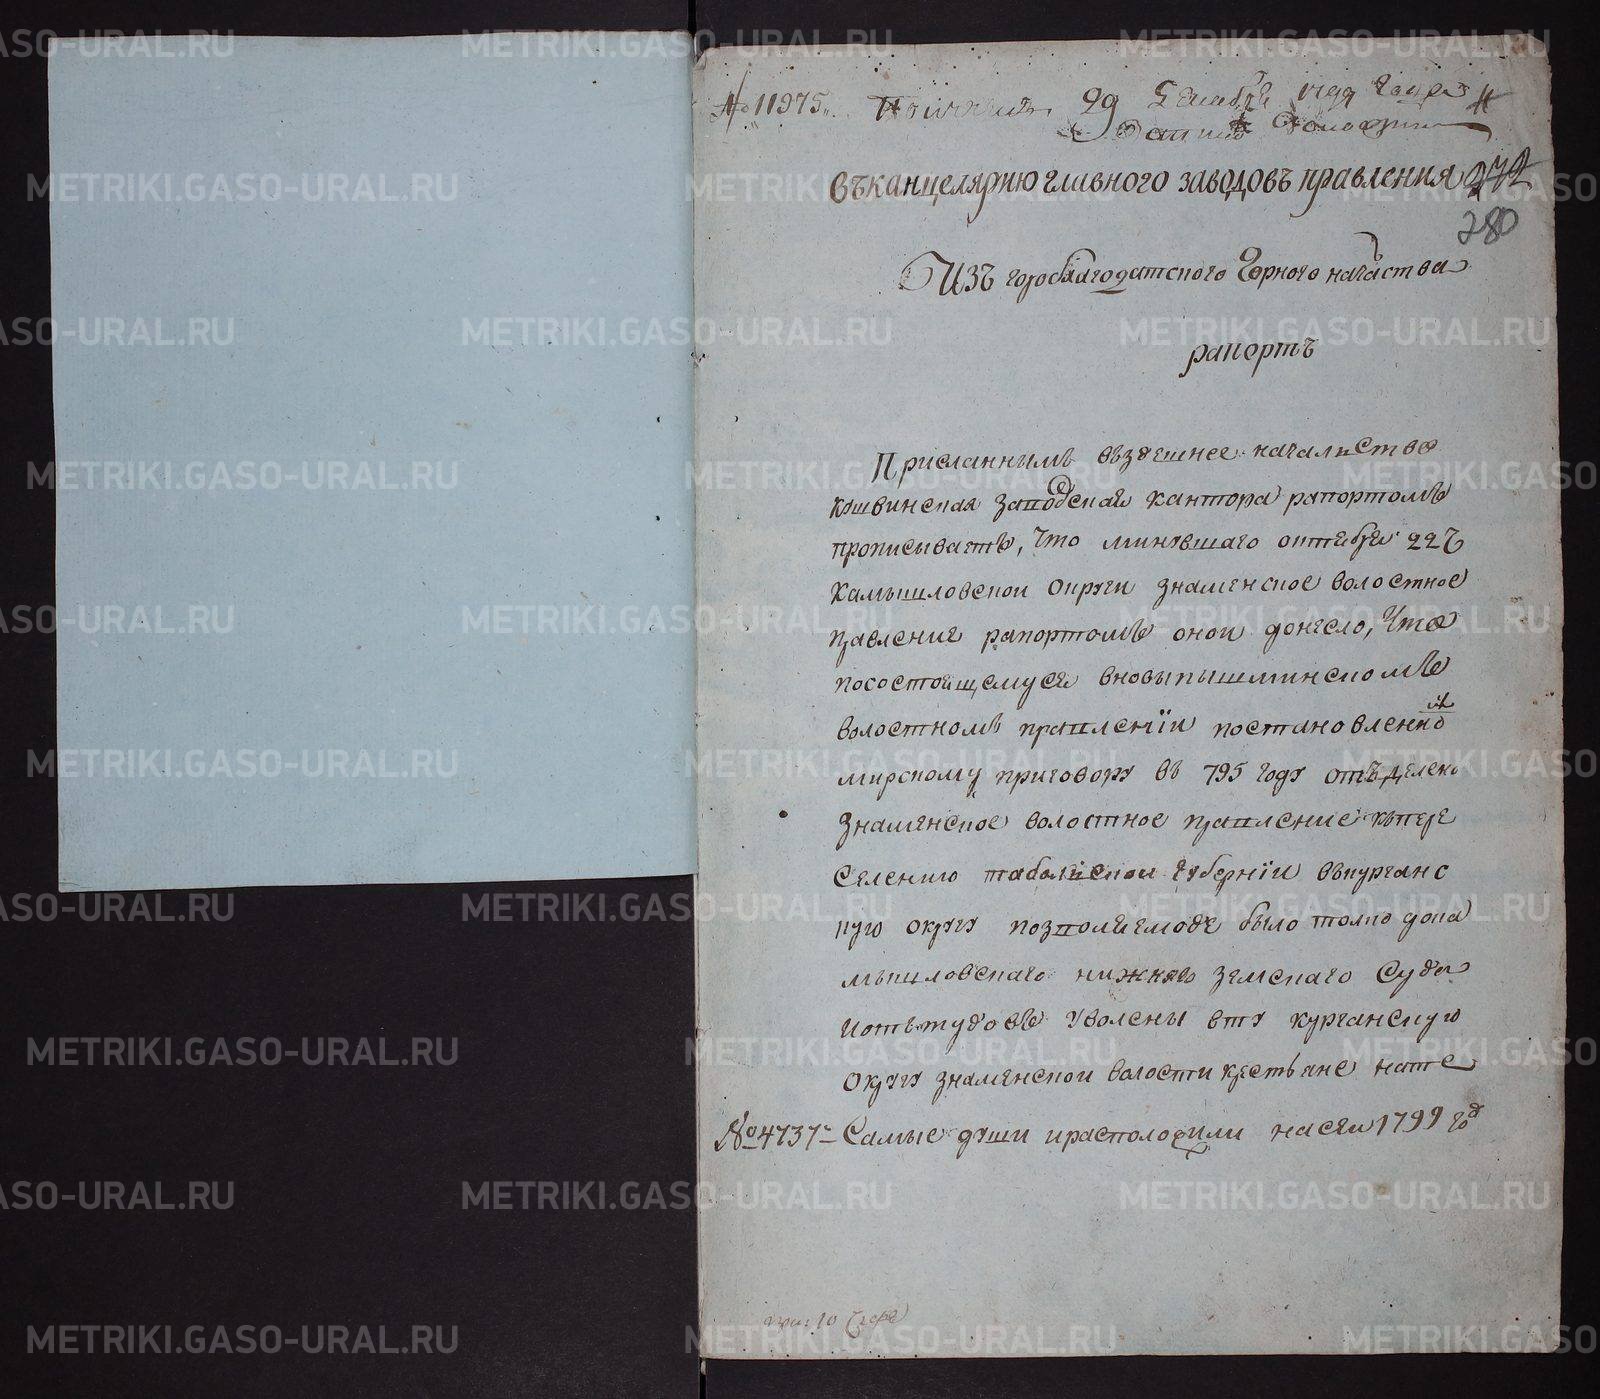 № 11975. 29 Декабря 1799 Года
въканцелярию главного заводовъ правления 272
280
Изъ гороблагодатского Горного начаства
рапортъ
Присланнымъ въздешнее началство
кушвинская заводская кантора рапортомъ
прописываетъ, что минувшаго октября 22г
Камышловской округи знаменское волостное
правление рапортомъ оной донесло, что
посостоящемуся вновыпышминскомъ
волостномъ правленїи постановленно
мирскому приговору въ 795 году отъделено
Знаменское волостное правление къпере
селению таболской губернїи въкурганс
кую округу позволяеможе было толко дока
мышловскаго нижняго земскаго Суда
иотътудовъ уволены вту курганскую
округу знаменской волости крестьяне нате
№ 4737 Самые души ирасположили насей 1799 год